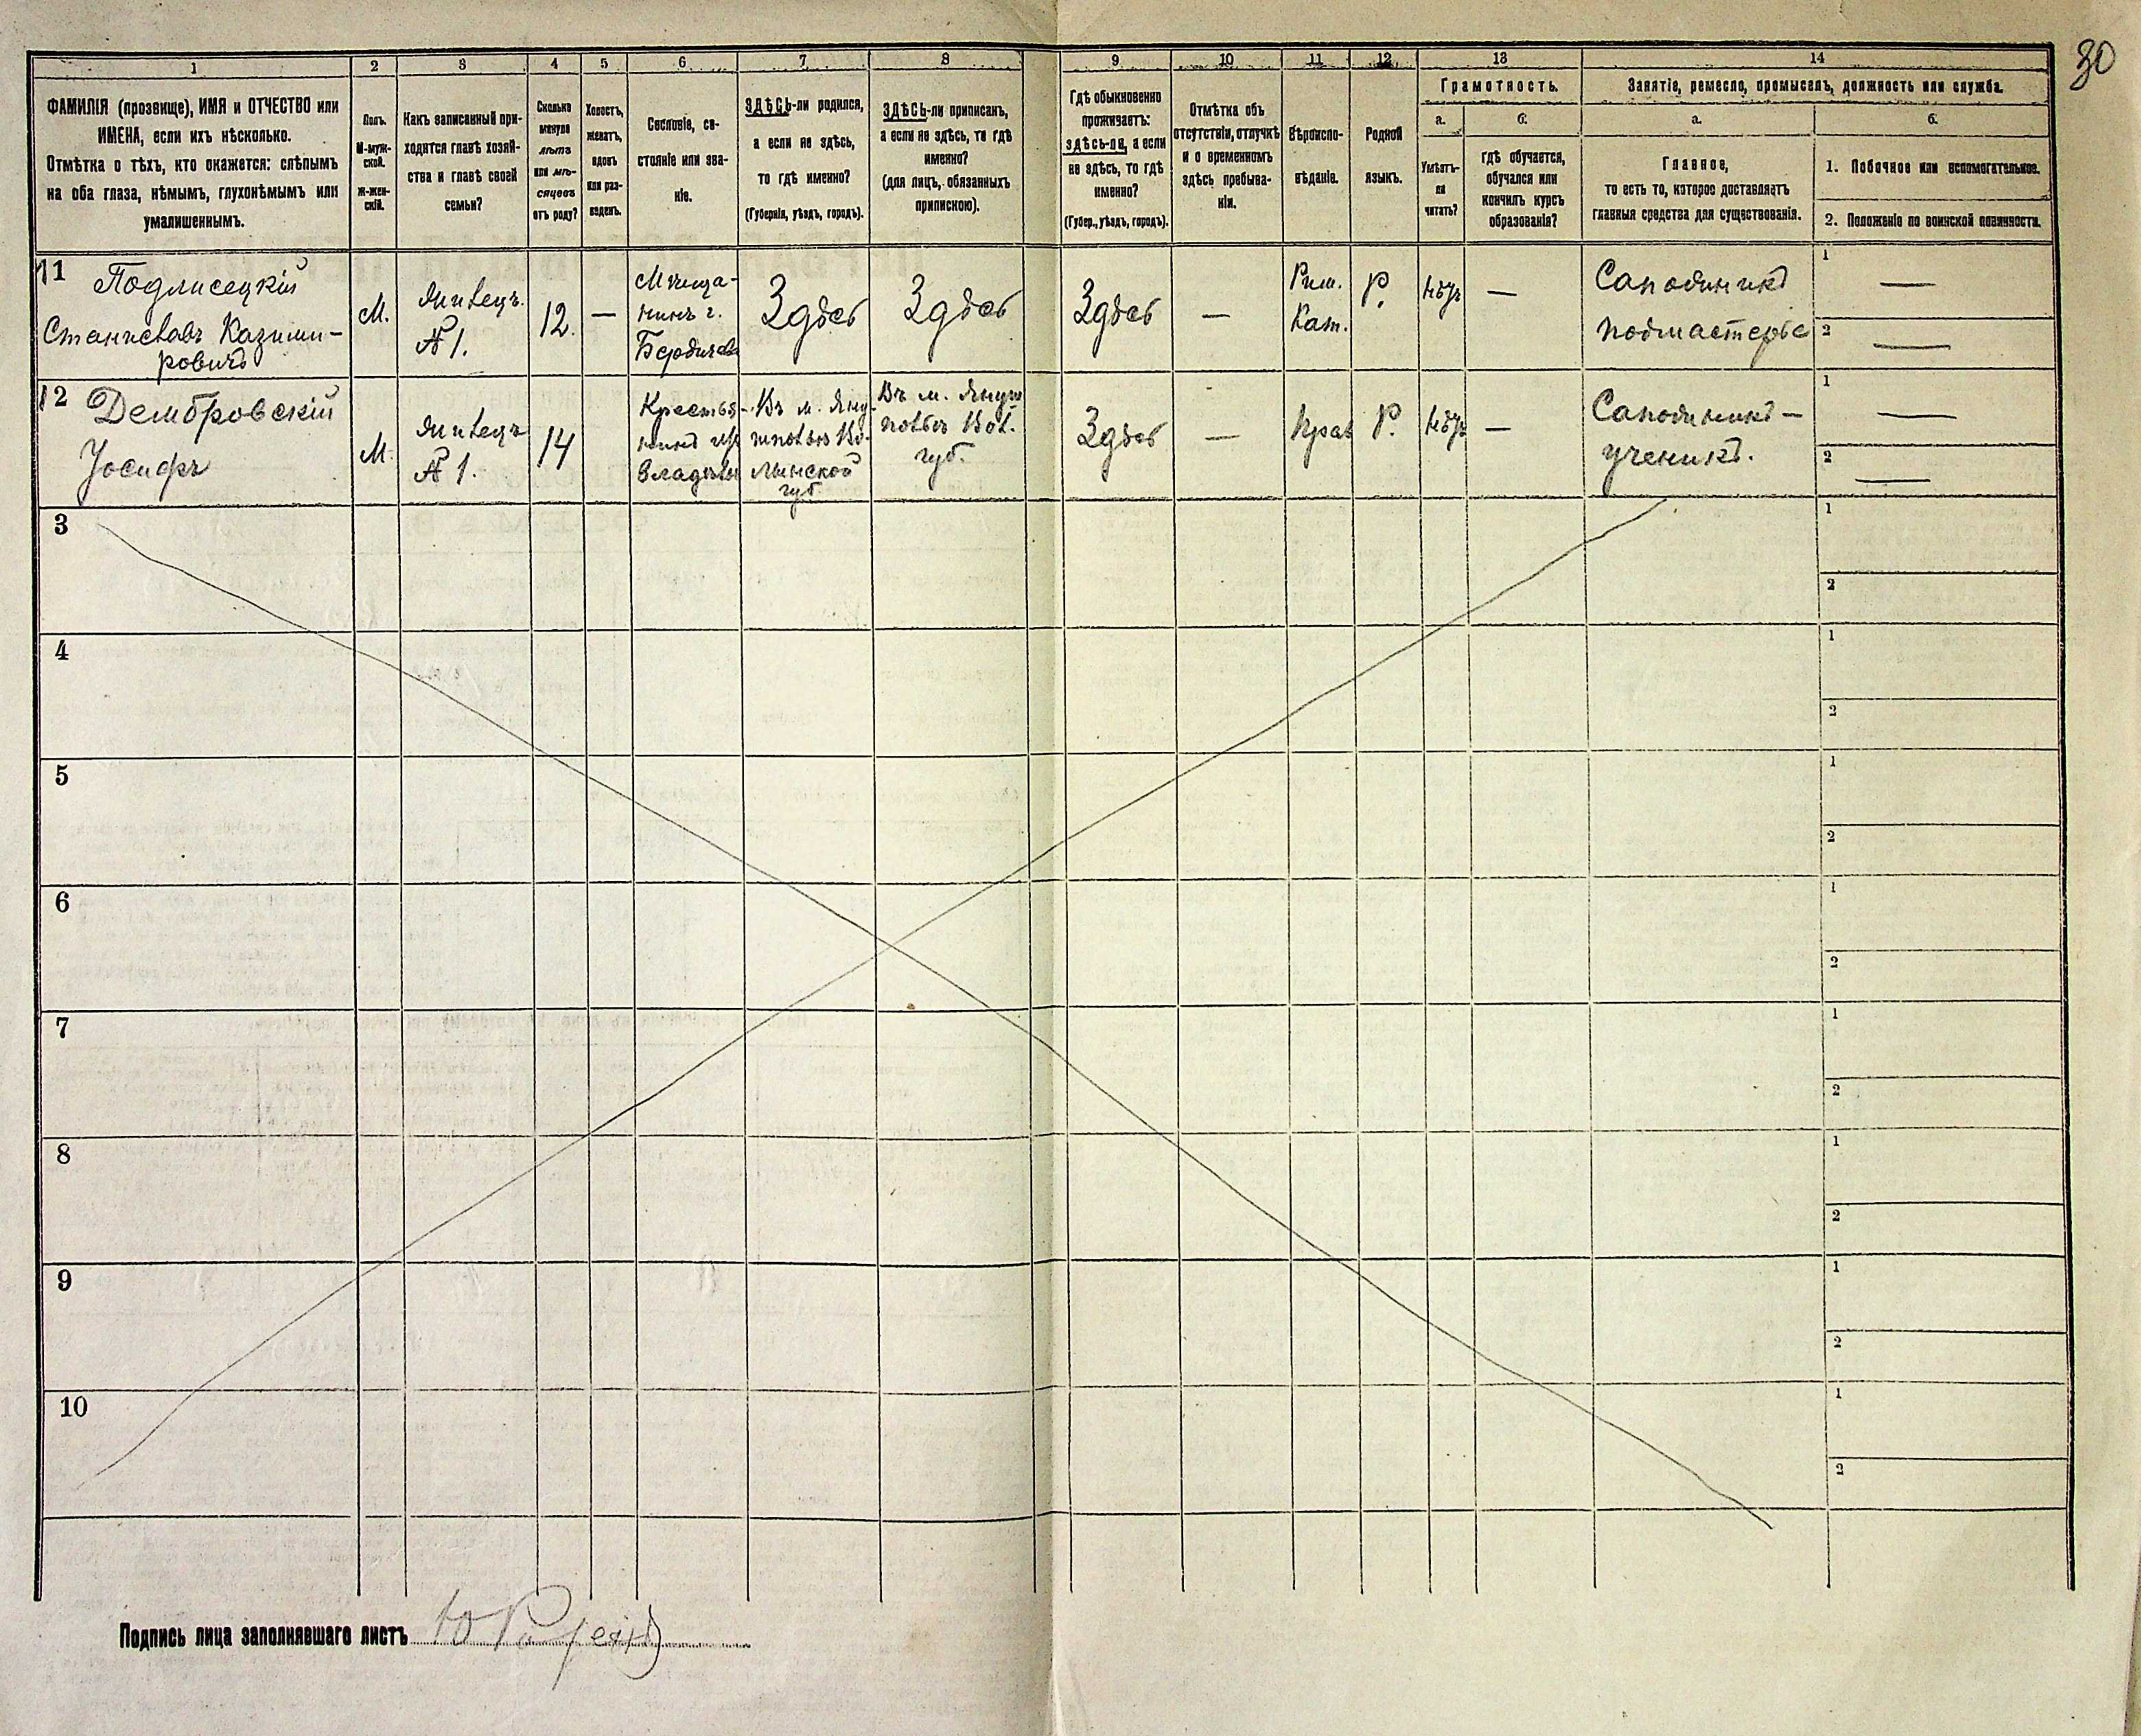 30
1 2 3 4 5 6 7 8 9 10 11 12 13 14
ФАМИЛІЯ (прозвище), ИМЯ и ОТЧЕСТВО или
ИМЕНА, если ихъ нѣсколько.
Отмѣтка о тѣхъ, кто окажется: слѣпымъ
на оба глаза, нѣмымъ, глухонѣмымъ или
умалишеннымъ.
Полъ.
М-муж-
ской.
Ж-жен-
скій.
Какъ записанный при-
ходится главѣ хозяй-
ства и главѣ своей
семьи?
Сколько
минуло
лѣтъ
или мѣ-
сяцевъ
отъ роду?
Холостъ,
женатъ,
вдовъ
или раз-
веденъ.
Сословіе, со-
стояніе или зва-
ніе.
ЗДѢСЬ-ли родился,
а если не здѣсь,
то гдѣ именно?
(Губернія, уѣздъ, городъ).
ЗДѢСЬ-ли приписанъ,
а если не здѣсь, то гдѣ
именно?
(для лицъ, обязанныхъ
припискою).
Гдѣ обыкновенно
проживаетъ:
здѣсь-ли, а если
не здѣсь, то гдѣ
именно?
(Губер., уѣздъ, городъ).
Отмѣтка объ
отсутствіи, отлучкѣ
и о временномъ
здѣсь пребыва-
ніи.
Вѣроиспо-
вѣданіе.
Родной
языкъ.
Грамотность.
а.
Умѣетъ-
ли
читать?
б.
гдѣ обучается,
обучался или
кончилъ курсъ
образованія?
Занятіе, ремесло, промыселъ, должность или служба.
а.
Главное,
то есть то, которое доставляетъ
главныя средства для существованія.
б.
1. Побочное или вспомогательное.
2. Положеніе по воинской повинности.
11 Подлисецкій
Станиславъ Казими-
ровичъ
М.
Жилецъ.
№ 1.
12.
—
Мѣща-
нинъ г.
Бердичева
Здѣсь
Здѣсь
Здѣсь
—
Рим.
Кат.
Р.
нѣтъ
—
Сапожникъ
подмастерье
1 —
2 —
12 Дембровскій
Іосифъ
М.
Жилецъ
№ 1.
14
Крестья-
нинъ
Въ м. Яну-
шполѣ Во-
лынской
губ
Въ м. Януш
полѣ Вол.
губ.
Здѣсь
—
Прав
Р.
нѣтъ
—
Сапожникъ —
ученикъ.
1 —
2 —
3
1
2
4
1
2
5
1
2
6
1
2
7
1
2
8
1
2
9
1
2
10
1
2
Подпись лица заполнявшаго листъ